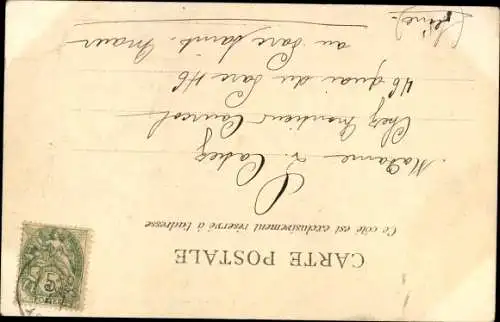 CARTE POSTALE
Ce côté est exclusivement réservé à l'adresse
Madame L. Cadez
Chez Monsieur
46 quai du Parc 46
au Parc Saint-Maur
(Seine)
5